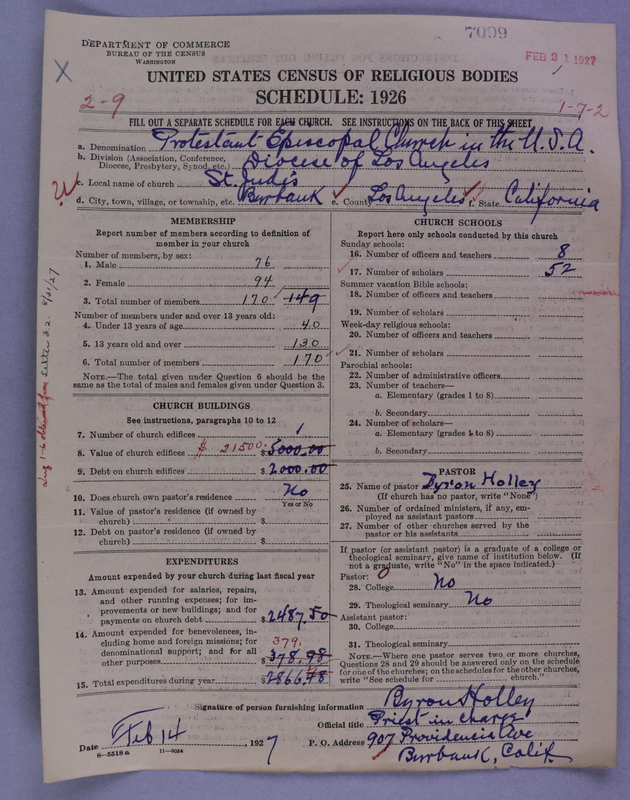 7099
DEPARTMENT OF COMMERCE
BUREAU OF THE CENSUS
WASHINGTON
FEB 21 1927
X
UNITED STATES CENSUS OF RELIGIOUS BODIES
2-9
SCHEDULE: 1926
1-7-2
FILL OUT A SEPARATE SCHEDULE FOR EACH CHURCH. SEE INSTRUCTIONS ON THE BACK OF THIS SHEET
a. Denomination Protestant Episcopal Church in the U.S.A.
b. Division (Association, Conference, Diocese, Presbytery, Synod, etc.) Diocese of Los Angeles
c. Local name of church St. Jude's
d. City, town, village, or township, etc. Burbank e. County Los Angeles f. State California
MEMBERSHIP
Report number of members according to definition of
member in your church
Number of members, by sex:
1. Male 76
2. Female 94
3. Total number of members 170 149
Number of members under and over 13 years old:
4. Under 13 years of age 40
5. 13 years old and over 130
6. Total number of members 170
NOTE.—The total given under Question 6 should be the
same as the total of males and females given under Question 3.
CHURCH BUILDINGS
See instructions, paragraphs 10 to 12
7. Number of church edifices 1
8. Value of church edifices $ 21500 $ 5000.00
9. Debt on church edifices $ 2000.00
10. Does church own pastor's residence No
Yes or No
11. Value of pastor's residence (if owned by
church) $
12. Debt on pastor's residence (if owned by
church) $
EXPENDITURES
Amount expended by your church during last fiscal year
13. Amount expended for salaries, repairs,
and other running expenses; for im-
provements or new buildings; and for
payments on church debt $2487.50
14. Amount expended for benevolences, in-
cluding home and foreign missions; for 379.
denominational support; and for all
other purposes $ 378.98
15. Total expenditures during year $2866.48
CHURCH SCHOOLS
Report here only schools conducted by this church
Sunday schools:
16. Number of officers and teachers 8
17. Number of scholars 52
Summer vacation Bible schools:
18. Number of officers and teachers
19. Number of scholars
Week-day religious schools:
20. Number of officers and teachers
21. Number of scholars
Parochial schools:
22. Number of administrative officers
23. Number of teachers—
a. Elementary (grades 1 to 8)
b. Secondary
24. Number of scholars—
a. Elementary (grades 1 to 8)
b. Secondary
PASTOR
25. Name of pastor Byron Holley
(If church has no pastor, write "None")
26. Number of ordained ministers, if any, em-
ployed as assistant pastors
27. Number of other churches served by the
pastor or his assistants
If pastor (or assistant pastor) is a graduate of a college or
theological seminary, give name of institution below. (If
not a graduate, write "No" in the space indicated.)
Pastor: 0
28. College No
29. Theological seminary No
Assistant pastor:
30. College
31. Theological seminary
NOTE.—Where one pastor serves two or more churches,
Questions 28 and 29 should be answered only on the schedule
for one of the churches; on the schedules for the other churches,
write "See schedule for church."
Signature of person furnishing information Byron Holley
Official title Priest in charge
Date Feb 14, 1927 P. O. Address 907 Providencia Ave
8—5518a 11—9084
Burbank, Calif.